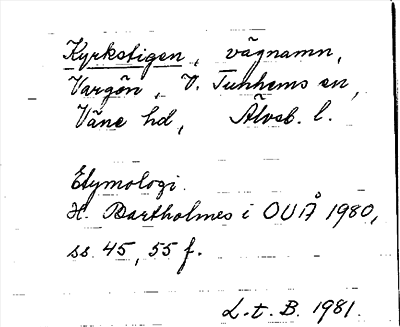 Kyrkstigen, vägnamn,
Vargön, V. Tunhems sn,
Väne hd, Älvsb. l.
Etymologi.
H. Bartholmes i OUÅ 1980,
ss. 45, 55 f.
L.t.B. 1981.